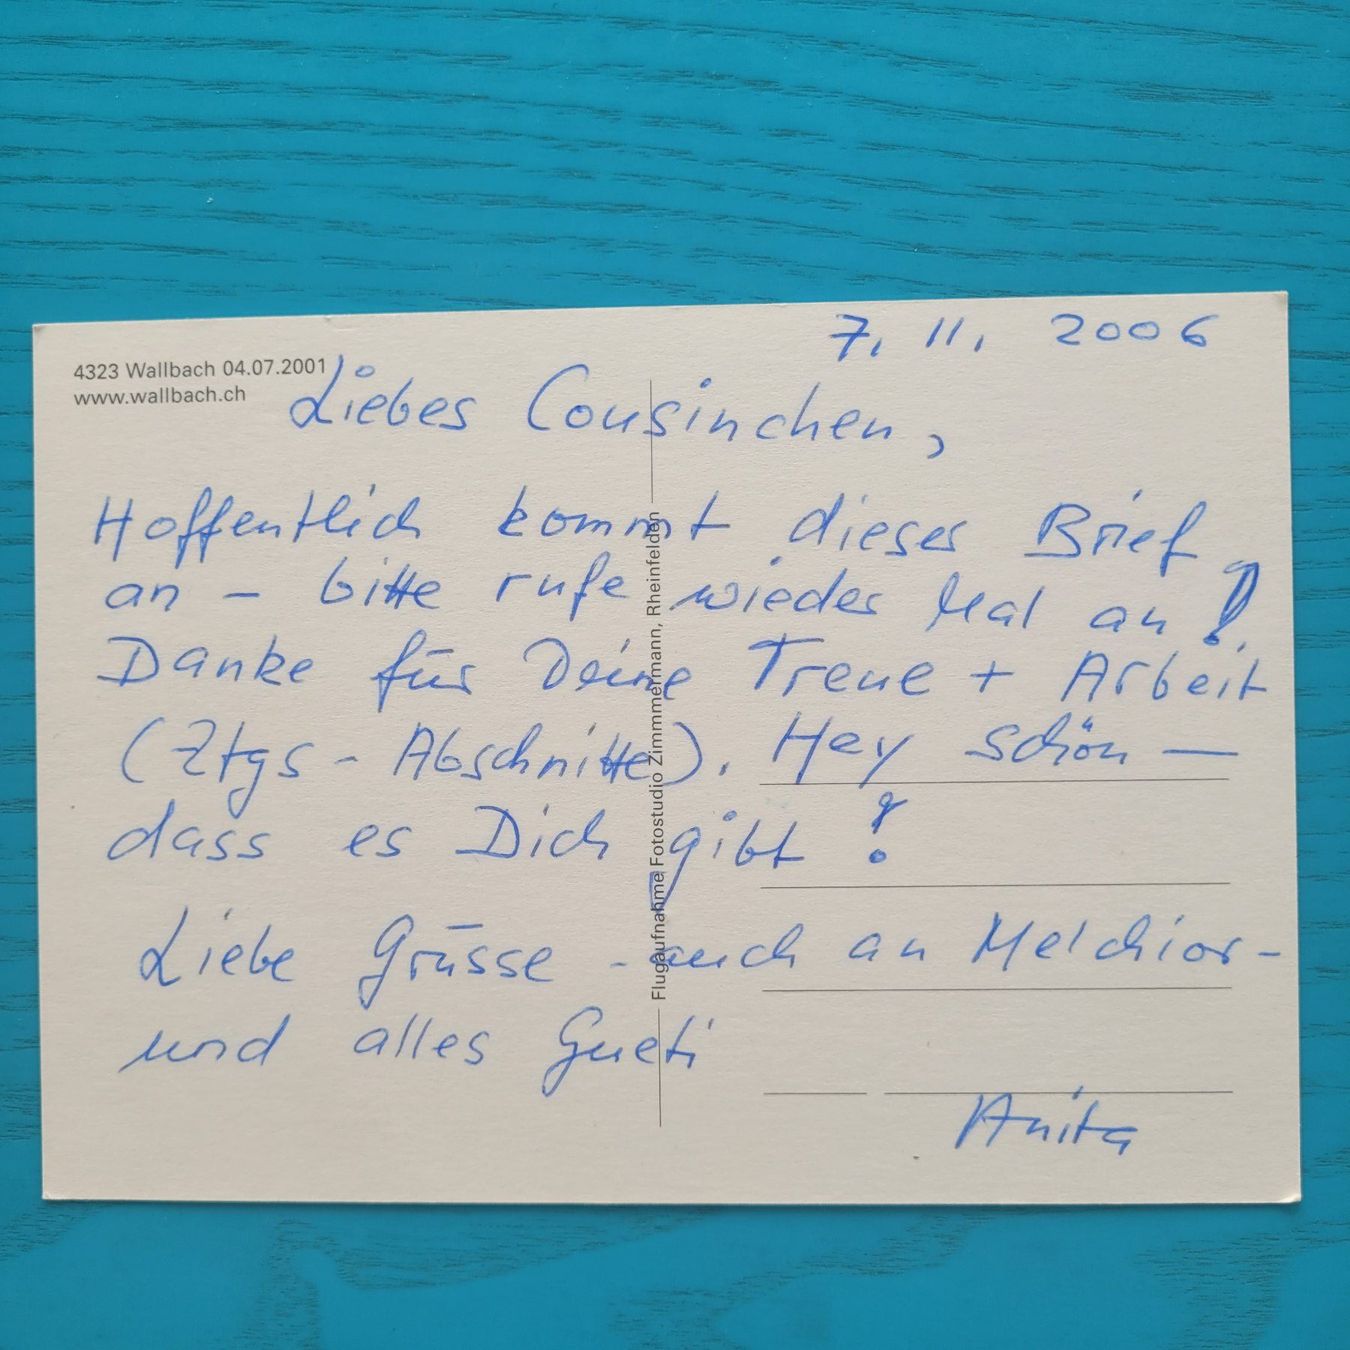 7. 11. 2006
4323 Wallbach 04.07.2001
www.wallbach.ch
Liebes Cousinchen,
Hoffentlich kommt dieser Brief
an – bitte rufe wieder Mal an!
Danke für Deine Treue + Arbeit
(Ztgs - Abschnitte). Hey schön —
dass es Dich gibt!
Liebe Grüsse - auch an Melchior -
und alles Gueti
Anita
Flugaufnahme Fotostudio Zimmmermann, Rheinfelden